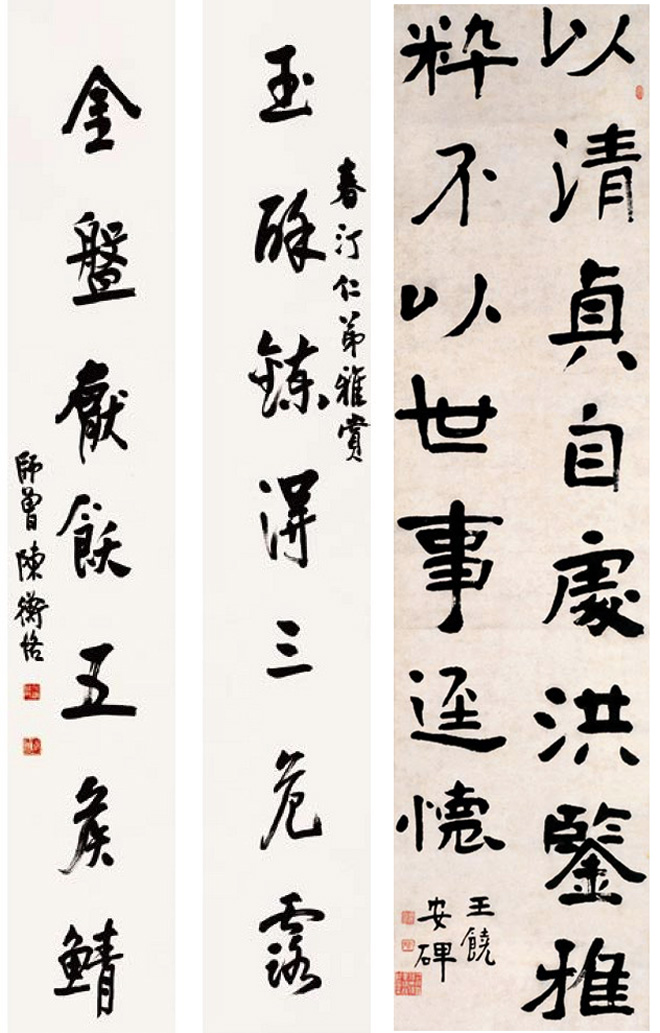 以清貞自處洪鑒雅
粹不以世事逕懷
王饒
安碑
春汀仁弟雅賞
玉酥鍊得三危露
金盤獻飫五侯鯖
師曾陳衡恪